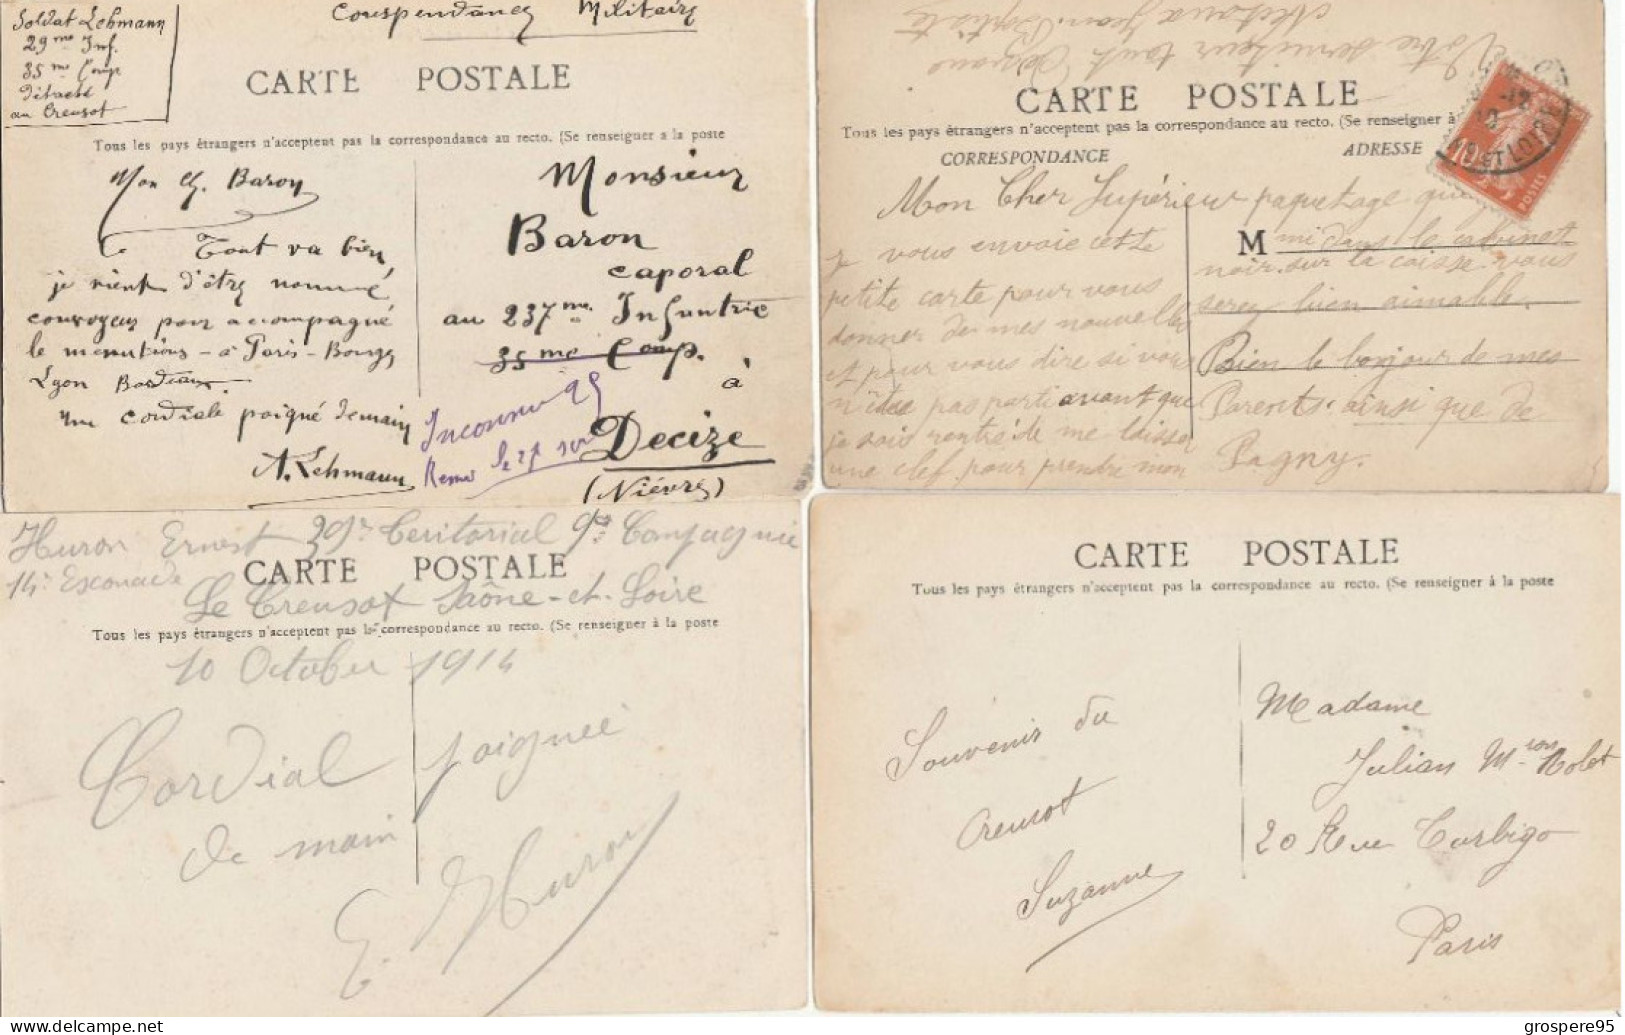 Soldat Lehmann
29me Inf.
35me Comp
Détaché
au Creusot
Corespendance Militaire
CARTE POSTALE
Tous les pays étrangers n'acceptent pas la correspondance au recto. (Se renseigner à la poste
Mon Ch. Baron
Tout va bien
je vient d'être nommé
convoyeur pour accompagné
le menutions - à Paris - Bourges
Lyon Bordeaux.
une cordiale poigné demain
A. Lehmann
Monsieur
Baron
caporal
au 237me Infantrie
35me Comp.
à
Decize
(Nièvre)
Inconnu
Votre serviteur tout
Jean Baptiste
CARTE POSTALE
Tous les pays étrangers n'acceptent pas la correspondance au recto. (Se renseigner à
CORRESPONDANCE
ADRESSE
10c
POSTES
Mon Cher Supérieur
je vous envoie cette
petite carte pour vous
donner de mes nouvelles
et pour vous dire si vous
n'étes pas parti avant que
je sois rentré de me laisser
une clef pour prendre mon
paquetage que
M
mi dans le cabinet
noir. sur la caisse. vous
serez bien aimable.
Bien le bonjour de mes
Parents. ainsi que de
Pagny.
Huron Ernest 29e Teritorial 9e Compagnie
14e Escouade
CARTE POSTALE
Le Creusot Saône-et-Loire
Tous les pays étrangers n'acceptent pas la correspondance au recto. (Se renseigner à la poste
10 Octobre 1914
Cordial poignée
de main
E. Huron
CARTE POSTALE
Tous les pays étrangers n'acceptent pas la correspondance au recto. (Se renseigner à la poste
Souvenir du
Creusot
Suzanne
Madame
Julian Mson Nolet
20 Rue Turbigo
Paris
grospere95